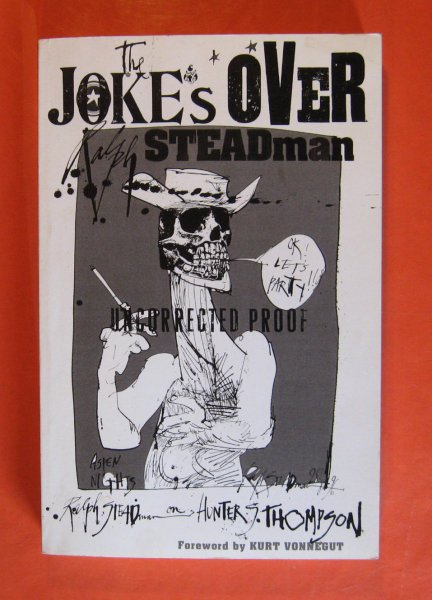 The
JOKE's OVER
Ralph STEADman
OK!
LET'S
PARTY!!!
UNCORRECTED PROOF
ASPEN
NIGHTS
Ralph STEADman on HUNTER S. THOMPSON
Foreword by KURT VONNEGUT